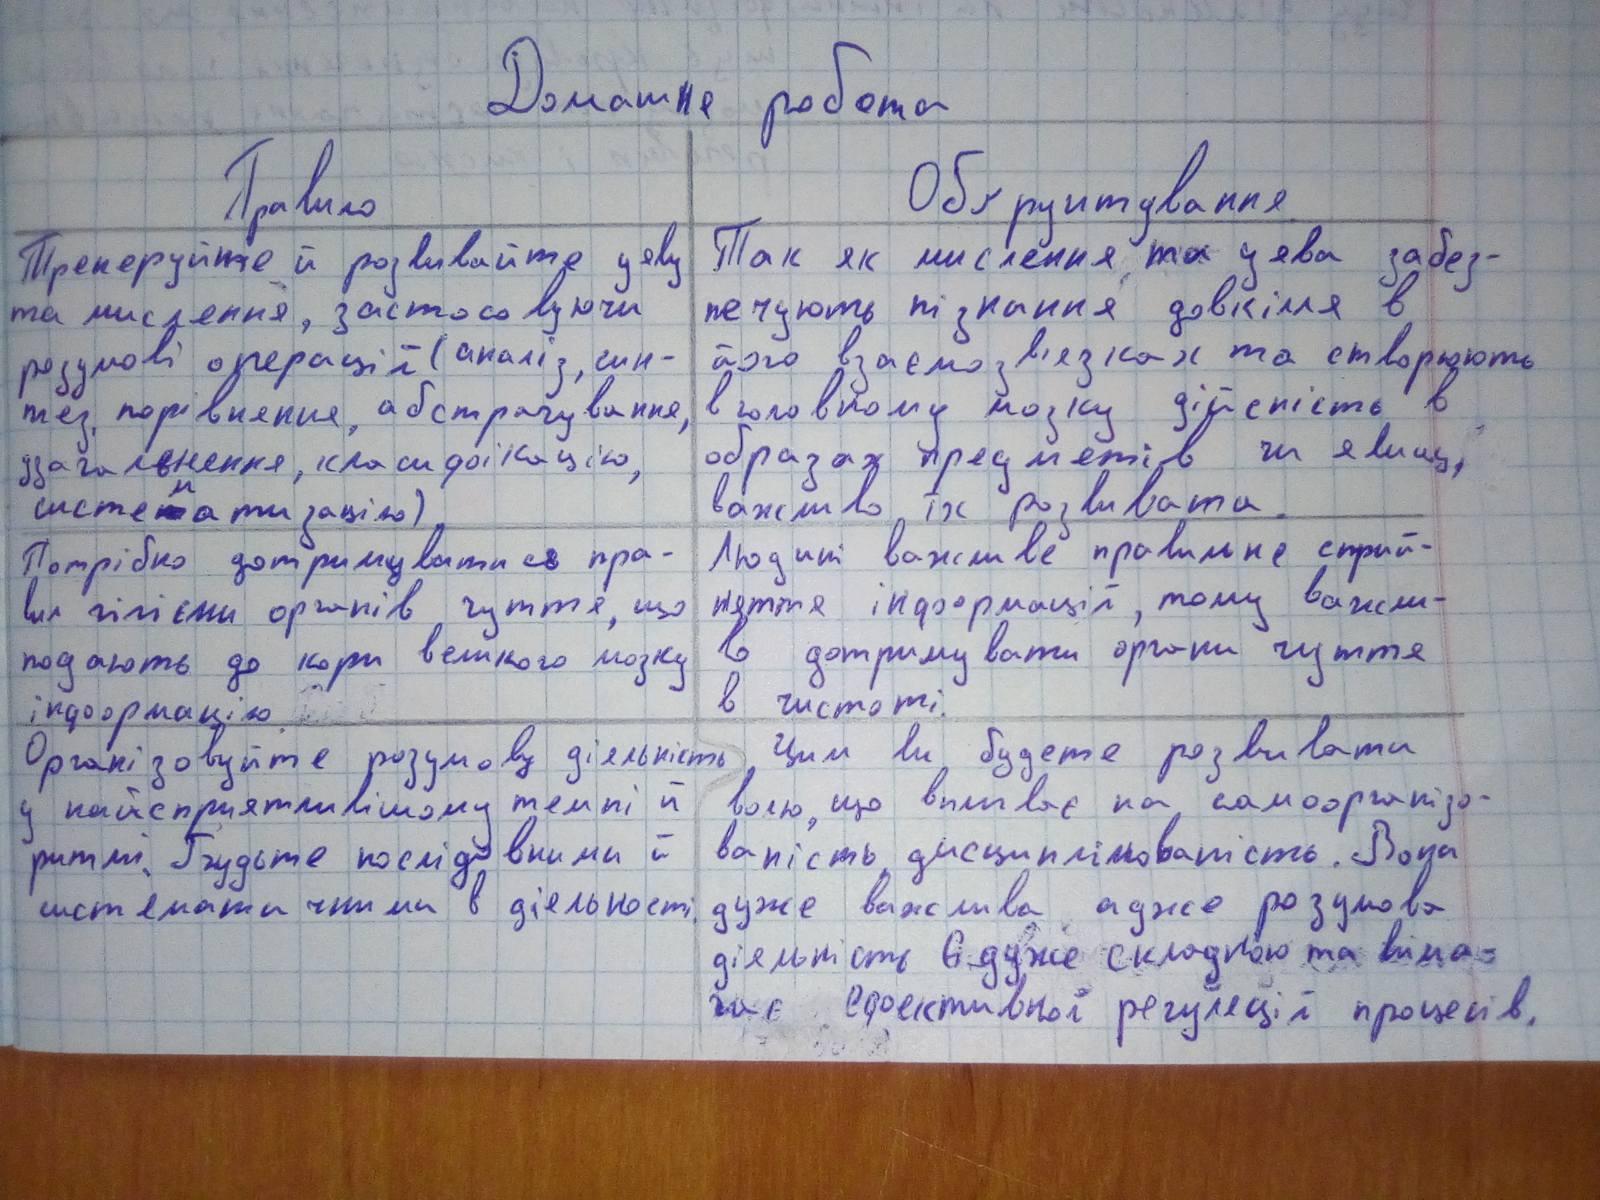 Домашня робота
Правило
Обґрунтування
Тренеруйте й розвивайте уяву
та мислення, застосовуючи
розумові операції (аналіз, син-
тез, порівняння, абстрагування,
узагальнення, класифікацію,
систематизацію)
Так як мислення та уява забез-
печують пізнання довкілля в
його взаємозв'язках та створюють
в головному мозку дійсність в
образах предметів чи явищ,
важливо їх розвивати.
Потрібно дотримуватися пра-
вил гігієни органів чуття, що
подають до кори великого мозку
інформацію
Людині важливе правильне сприй-
няття інформації, тому важли-
во дотримувати органи чуття
в чистоті.
Організовуйте розумову діяльність
у найсприятливішому темпі й
ритмі. Будьте послідовними й
систематичними в діяльності.
Цим ви будете розвивати
волю, що впливає на самоорганізо-
ваність, дисциплінованість. Вона
дуже важлива адже розумова
діяльність є дуже складною та вима-
гає ефективної регуляції процесів.